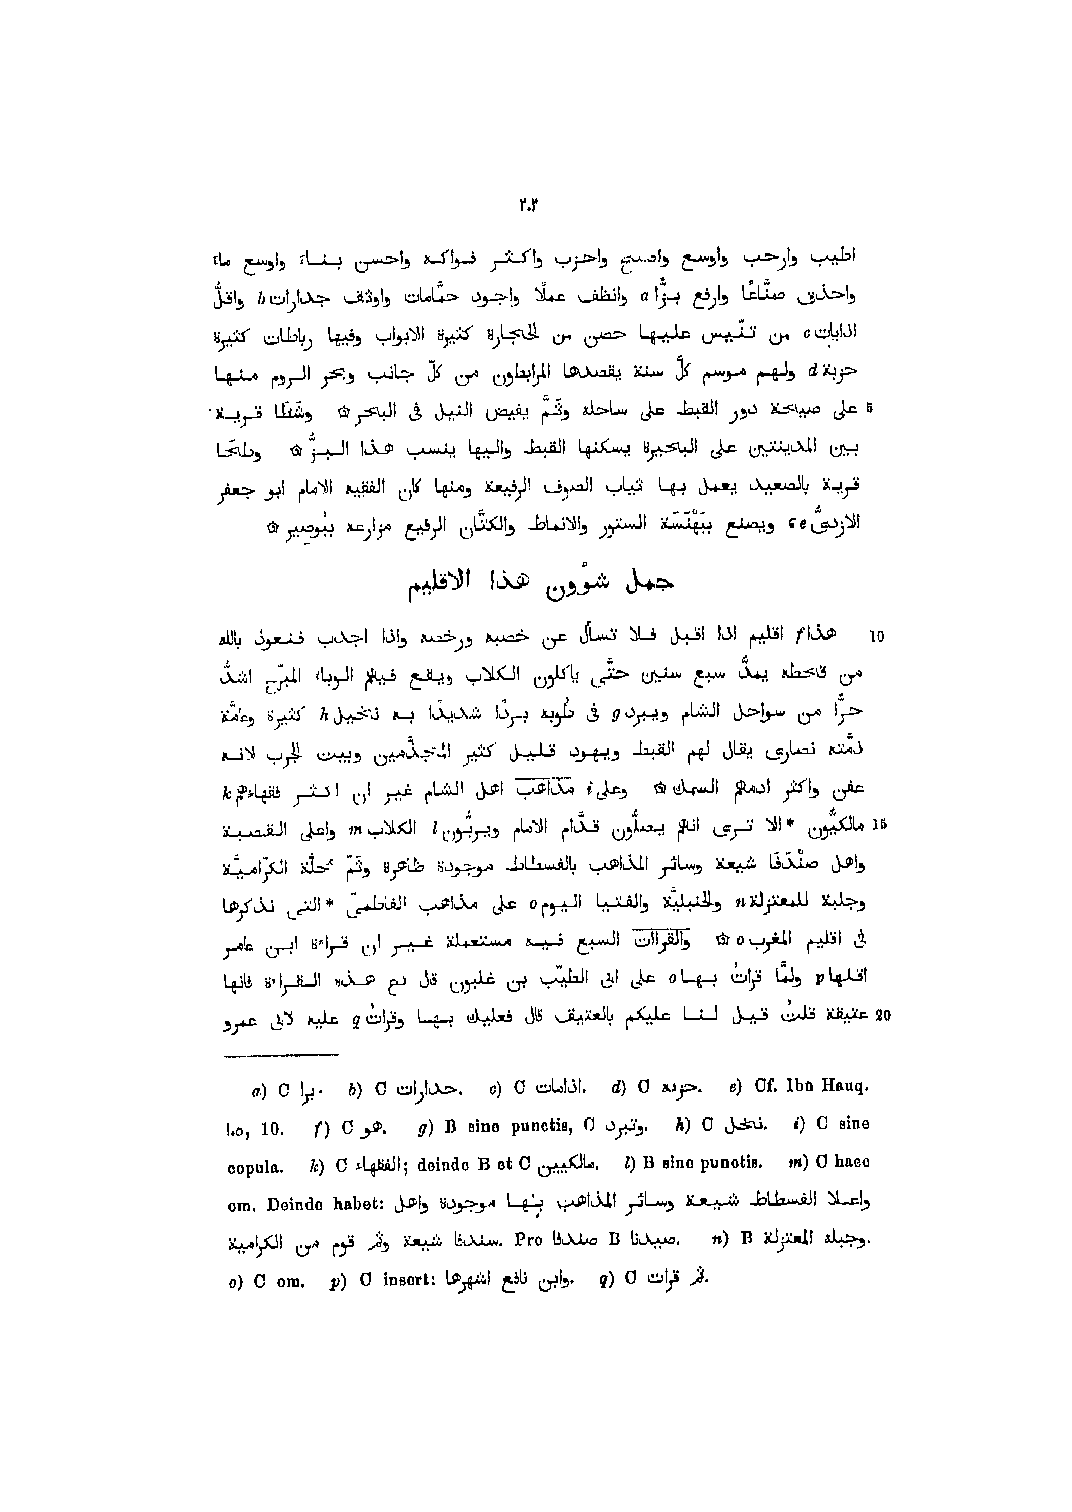 ٢٠٢
اطيب وارحب واوسع وافسح واحزب واكثر فواكه واحسن بناء واوسع ماء
واحذق صنّاعًا وارفع بزًّا a وانظف عملًا واجود حمّامات واوثق جدارات b واقلّ
اذايات c من تنّيس عليها حصن من الحجارة كثيرة الابواب وفيها رباطات كثيرة
حزبة d ولهم موسم كلّ سنة يقصدها المرابطون من كلّ جانب وبحر الروم منها
5 على صيحة دور القبط على ساحله وثَمَّ يفيض النيل فى البحر ۞ وشَطَا قرية
بين المدينتين على البحيرة يسكنها القبط واليها ينسب هذا البزّ ۞ وطَحَا
قرية بالصعيد يعمل بها ثياب الصوف الرفيعة ومنها كان الفقيه الامام ابو جعفر
الازدىّ e ويصنع ببَهْنَسَة الستور والانماط والكتّان الرفيع مزارعه ببُوصير ۞
جمل شؤون هذا الاقليم
10 هذا f اقليم اذا اقبل فلا تسأل عن خصبه ورخصه واذا اجدب فنعوذ بالله
من قحطه يمدّ سبع سنين حتّى ياكلون الكلاب ويقع فيهم الوباء المبرّح اشدّ
حرًّا من سواحل الشام ويبرد g فى طوبه بردًا شديدًا به نخيل h كثيرة وعامّة
ذمّته نصارى يقال لهم القبط ويهود قليل كثير المجذّمين وبيت الجرب لانه
عفن واكثر ادمهم السمك ۞ وعلى i مذاهب اهل الشام غير ان اكثر فقهاءهم k
15 مالكيّون * الا ترى انهم يصلّون قدّام الامام ويربّون l الكلاب m واعلى القصبة
واهل صندفا شيعة وسائر المذاهب بالفسطاط موجودة ظاهرة وثَمّ محلّة الكرّاميّة
وجلبة للمعتزلة n والحنبليّة والفتيا اليوم o على مذاهب الفاطمىّ * التى نذكرها
فى اقليم المغرب o ۞ والقراات السبع فيه مستعملة غير ان قراءة ابن عامر
اقلها p ولمّا قراتُ بها o على ابى الطيّب بن غلبون قال دع هذه القراءة فانها
20 عتيقة قلتُ قيل لنا عليكم بالعتيق قال فعليك بها وقراتُ q عليه لابى عمرو
a) C برا. b) C حدارات. c) C اذامات. d) C حربه. e) Cf. Ibn Hauq.
١٠٥, 10. f) C هو. g) B sine punctis, C وتبرد. h) C نخل. i) C sine
copula. k) C الفقهاء; deinde B et C مالكيين. l) B sine punctis. m) C haec
om. Deinde habet: واعلا الفسطاط شيعة وسائر المذاهب بها موجودة واهل
سندفا شيعة وثم قوم من الكرامية. Pro صندفا B صيدنا. n) B وجبله المعتزلة.
o) C om. p) C insert: وابن نافع اشهرها. q) C ثم قرات.